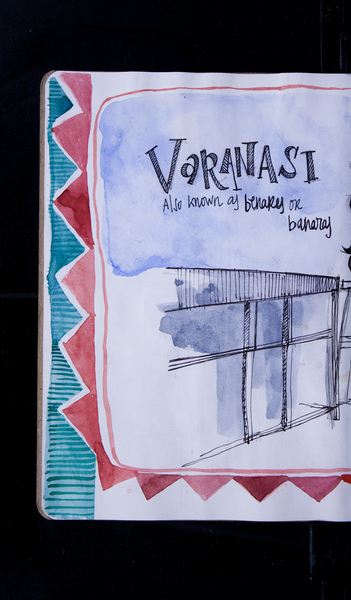 VaRANASI
Also known as benares or
banaras